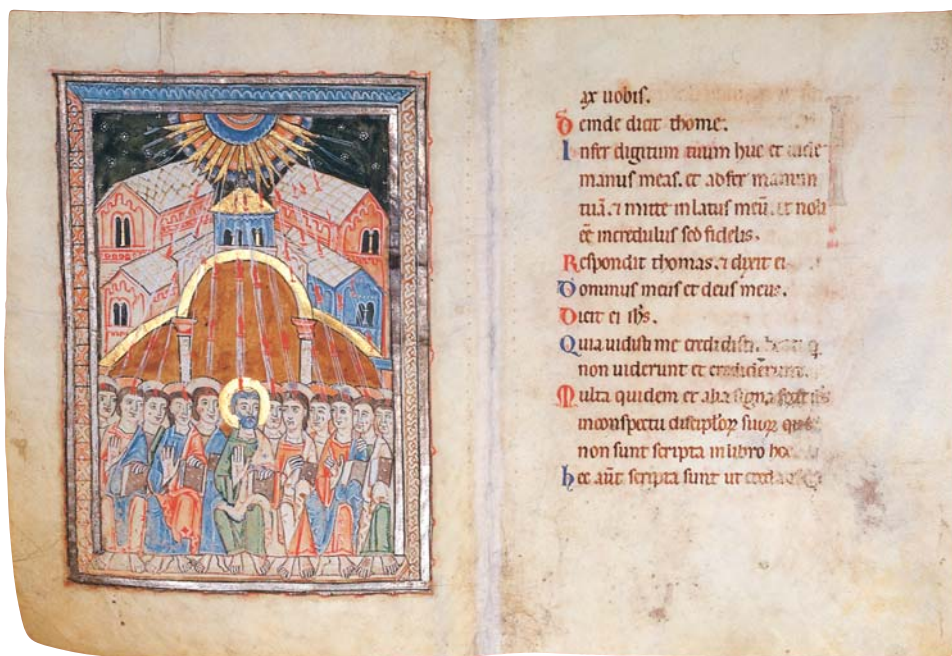 ax uobis.
Deinde dicit thome.
Infer digitum tuum huc et uide
manus meas. et adfer manum
tuā. ⁊ mitte in latus meū. et noli
eē incredulus sed fidelis.
Respondit thomas. ⁊ dixit ei
Dominus meus et deus meus.
Dicit ei ihs.
Quia uidisti me credidisti.
non uiderunt et crediderunt.
Multa quidem et alia signa fecit ihs
inconspectu disciploꝝ suoꝝ que
non sunt scripta in libro hoc
hec aūt scripta sunt ut